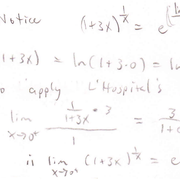 Notice (1+3x)^{1/x} = e^{(ln
1+3x) = ln(1+3·0) = ln
apply L'Hospital's
lim_{x→0⁺} \frac{\frac{1}{1+3x} · 3}{1} = \frac{3}{1+
lim_{x→0⁺} (1+3x)^{1/x} = e